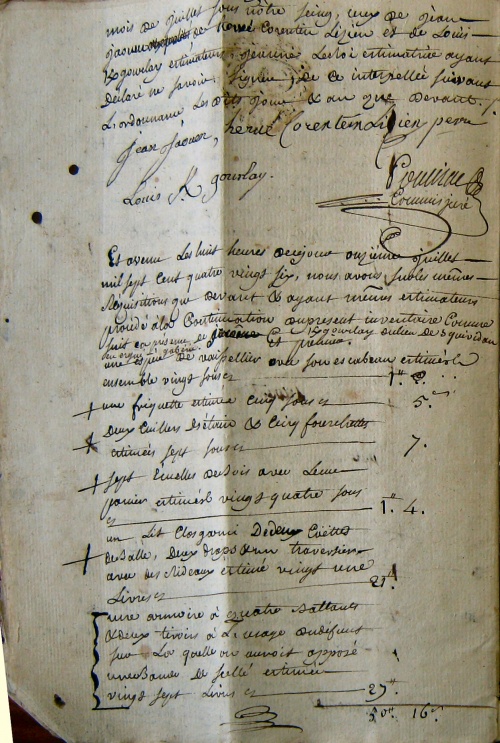 mois de juillet sous nôtre seing, ceux de jean
jaouen de hervé Corentin Lizien et de Louis
K gourlay estimateurs, jeunine Le Roi estimatrice ayant
declaré ne savoir signer, de ce interpellée suivant
L'ordonnance, Les dits jour & an que devant /.
jean jaouen, hervé Corentin Lizien
Louis K gourlay.
Commis juré
Et avenu Les huit heures de ce jour onzieme juillet
mil sept cent quatre vingt six, nous avons sur les mêmes
Réquisitions que devant & ayant mêmes estimateurs
procédé à la Continuation du present inventaire Comme
suit en presence de K gourlay au lieu de
une espece de vaisellier avec son escabeau estimés
ensemble vingt sous cy 1" "
une friquette estimée cinq sous cy 5.
Deux Cuillers d'étain & Cinq fourchettes
estimées sept sous cy 7.
sept Ecuelles de Bois avec Leur
panier estimées vingt quatre sous
cy 1" 4.
un Lit Clos garni De deux Coëttes
de Balle, Deux draps & un traversier
avec des Rideaux estimé vingt une
Livres cy 21"
une armoire à quatre Battants
& deux tiroirs à L'usage du defunt
sur La quelle on avoit apposé
une Bande de scellé estimée
vingt sept Livres cy 27".
50" 16s